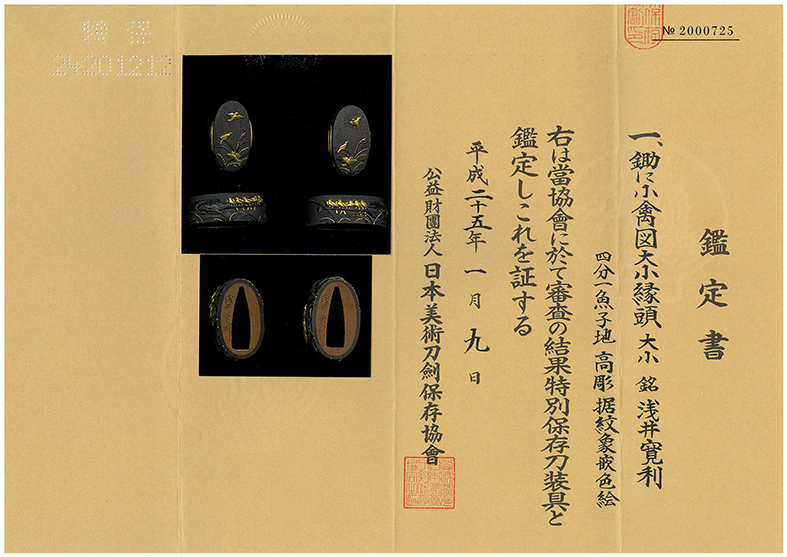 № 2000725
鑑定書
一、鋤に小禽図大小縁頭 大小 銘 浅井寛利
四分一魚子地 高彫 据紋象嵌色絵
右は當協會に於て審査の結果特別保存刀装具と
鑑定しこれを証する
平成二十五年一月九日
公益財團法人 日本美術刀劍保存協會
24201212